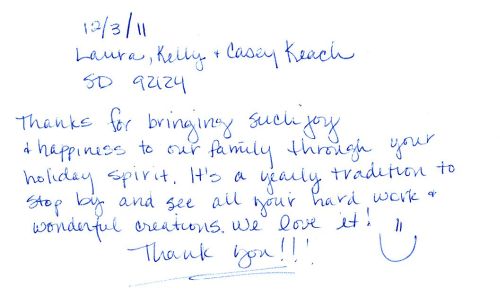 12/3/11
Laura, Kelly + Casey Keach
SD 92124
Thanks for bringing such joy
+ happiness to our family through your
holiday spirit. It's a yearly tradition to
stop by and see all your hard work +
wonderful creations. We love it!
Thank you!!!